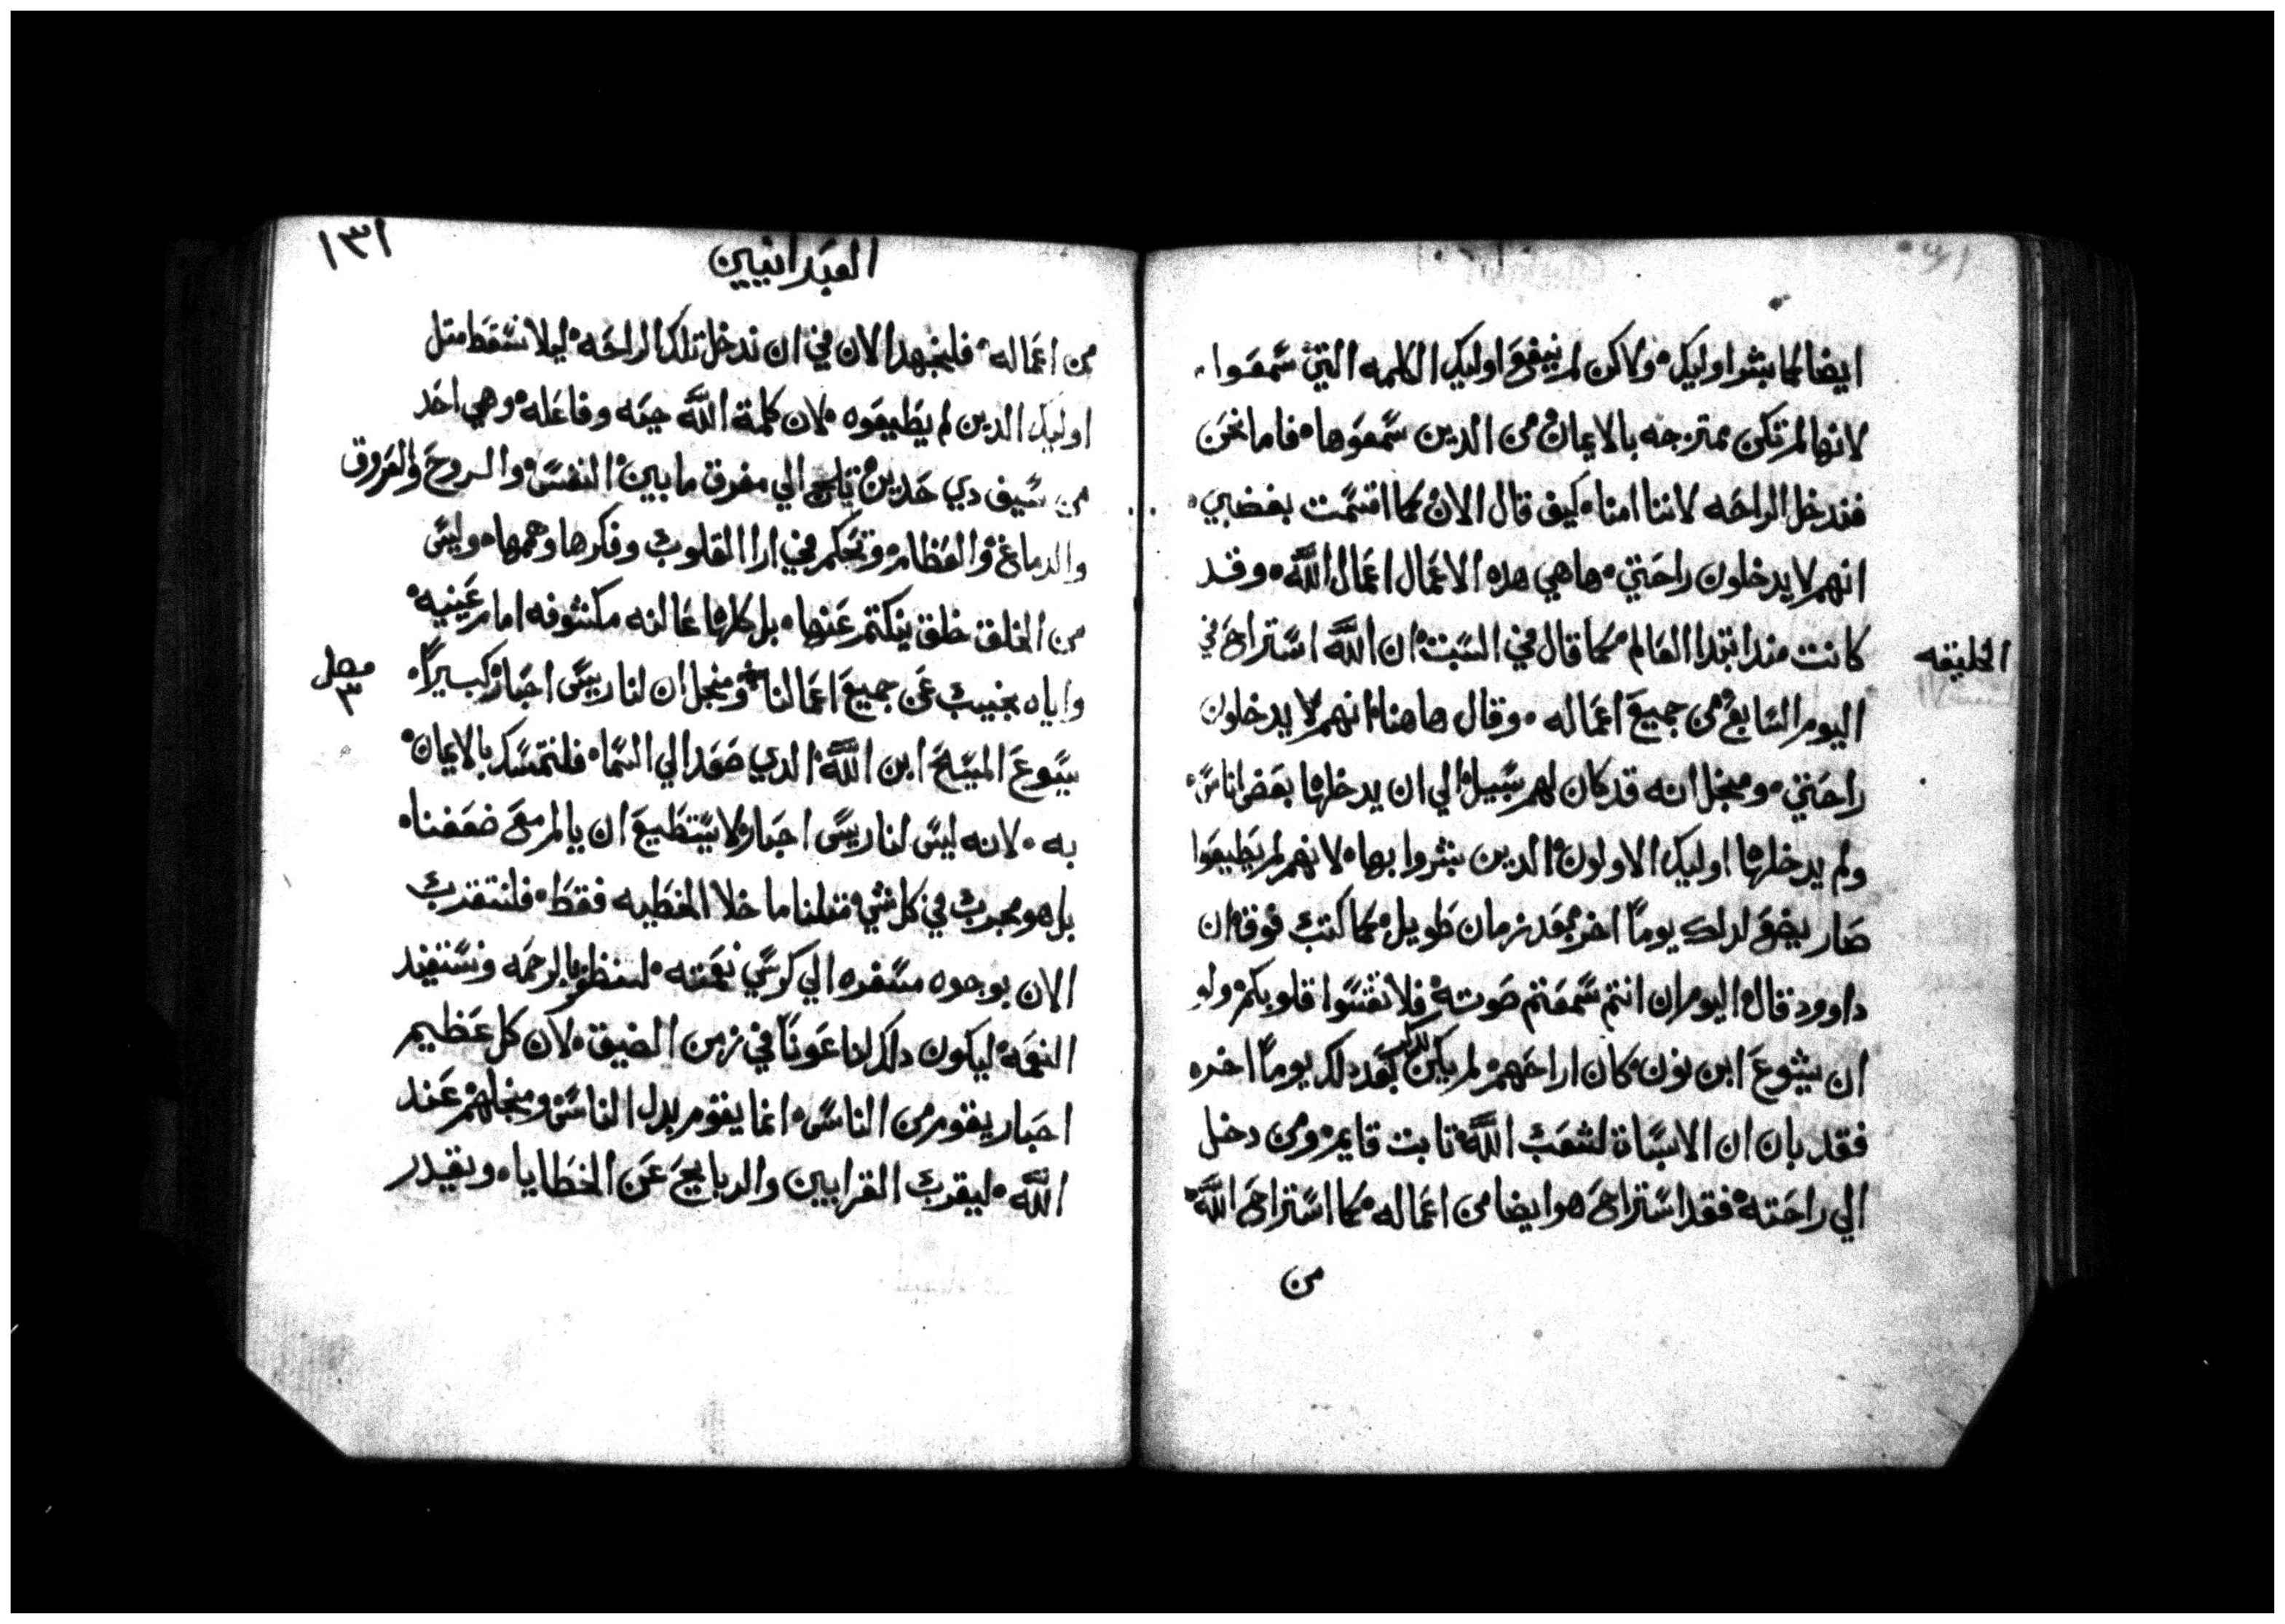 ايضا كما بشر اوليك ولاكن لم ينفع اوليك الكلمه التي سمعوا
لانها لم تكن ممتزجه بالايمان من الدين سمعوها فاما نحن
فندخل الراحه لاننا امنا كيف قال الان كما اقسمت بغضبي
انهم لا يدخلون راحتي هاهي هده الاعمال اعمال الله وقد
كانت مند ابتدا العالم كما قال في السبت ان الله استراح في
الخليقه
اليوم السابع من جميع اعماله وقال هاهنا انهم لا يدخلون
راحتي ومنجل انه قد كان لهم سبيل الي ان يدخلها بعض اناس
ولم يدخلها اوليك الاولون الدين بشروا بها لانهم لم يطيعوا
صار يضع لدلك يوما اخر بعد زمان طويل كما كتب فوق ان
داوود قال اليوم ان انتم سمعتم صوته فلا تقسوا قلوبكم ولو
ان يشوع ابن نون كان اراحهم لم يكن بعد دلك يوما اخر
فقد بان ان الاسباة لشعب الله تابت قايم ومن دخل
الي راحته فقد استراح هو ايضا من اعماله كما استراح الله
من
١٣١
العبرانيين
من اعماله فلنجتهد الان في ان ندخل تلك الراحه ليلا نسقط متل
اوليك الدين لم يطيعوه لان كلمة الله حيه وفاعله وهي احد
من سيف دي حدين تلج الي مفرق ما بين النفس والروح والعروق
والدماغ والعظام وتحكم في ارا القلوب وفكرها وهمها وليس
من الخلق خلق ينكتم عنها بل كلها عالنه مكشوفه امام عينيه
واياه نجيب عن جميع اعمالنا ومنجل ان لنا ريس احبار كبيرا
فصل
٣
يسوع المسيح ابن الله الدي صعد الي السما فلنتمسك بالايمان
به لانه ليس لنا ريس احبار لا يستطيع ان يالم مع ضعفنا
بل هو مجرب في كل شي متلنا ما خلا الخطيه فقط فلنتقدب
الان بوجوه مسفره الي كرسي نعمته لنظفر بالرحمه ونستفيد
النعمه ليكون دلك لنا عونا في زمن الضيق لان كل عظيم
احبار يقوم من الناس انما يقوم بدل الناس ومنجلهم عند
الله ليقرب القرابين والدبايح عن الخطايا ويقدر